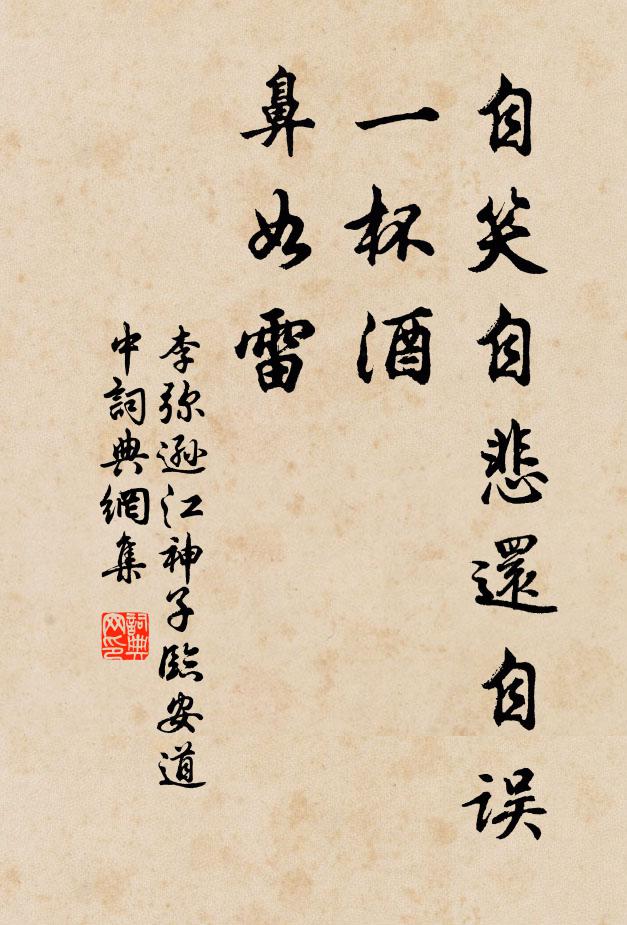 自笑自悲還自误
一杯酒
鼻如雷
李弥遜江神子臨安道
中詞典網集
詞典
网印